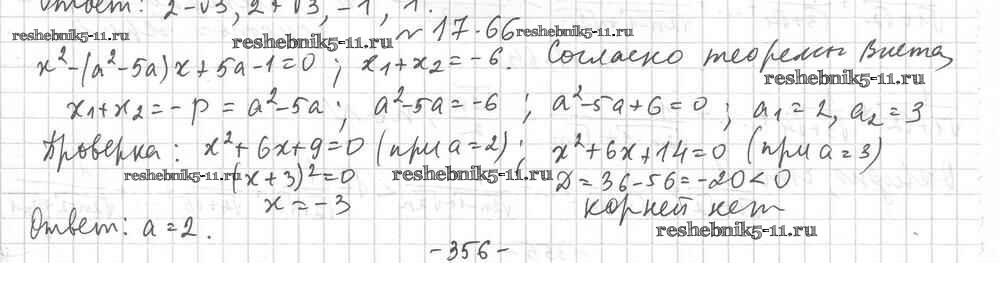 Ответ: 2-√3, 2+√3, -1, 1.
reshebnik5-11.ru reshebnik5-11.ru № 17.66 reshebnik5-11.ru
x²-(a²-5a)x+5a-1=0; x₁+x₂=-6. Согласно теоремы Виета,
reshebnik5-11.ru
x₁+x₂=-p=a²-5a; a²-5a=-6; a²-5a+6=0; a₁=2, a₂=3
Проверка: x²+6x+9=0 (при a=2); x²+6x+14=0 (при a=3)
reshebnik5-11.ru (x+3)²=0 reshebnik5-11.ru D=36-56=-20<0
x=-3 корней нет
Ответ: a=2. reshebnik5-11.ru
-356-